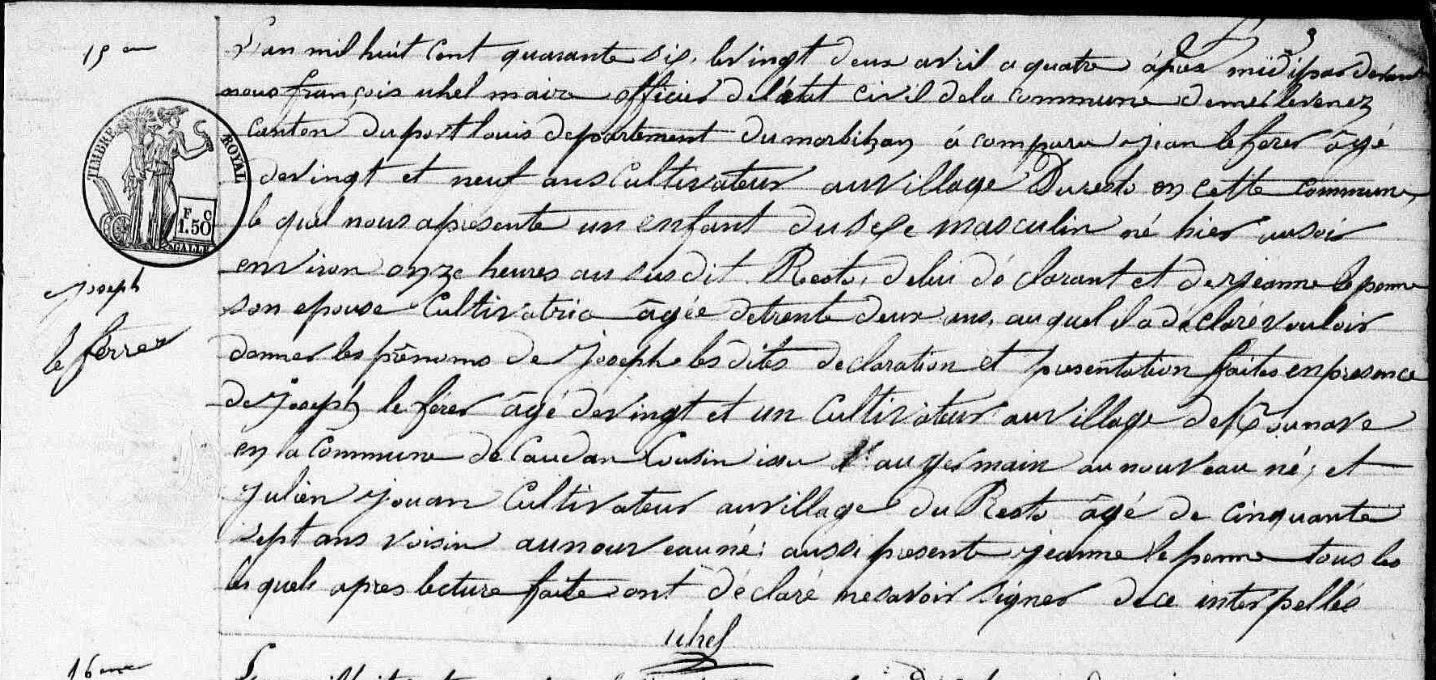 15eme
L'an mil huit cent quarante six, le vingt deux avril a quatre après midi par devant
nous françois uhel maire officier de l'état civil de la commune de merlevenez
canton du port louis departement du morbihan à comparu jean le ferer âgé
de vingt et neuf ans Cultivateur au village Du resto en cette commune,
le quel nous a presenté un enfant du sexe masculin né hier au soir
TIMBRE ROYAL
F. C
1.50
environ onze heures au susdit Resto, de lui déclarant et de jeanne le penne
son epouse Cultivatrice âgée de trente deux ans, auquel il a déclaré vouloir
donner les prénoms de Joseph les dites declaration et presentation faites en presence
Joseph
le ferrer
de Joseph le férer âgé de vingt et un Cultivateur au village de
en la commune de Caudan Cousin issu au germain au nouveau né; et
julien jouan Cultivateur au village du Resto âgé de cinquante
sept ans voisin au nouveau né; aussi presente jeanne le penne tous les
les quels apres lecture faite ont déclaré ne savoir signer de ce interpellés
uhel
16eme